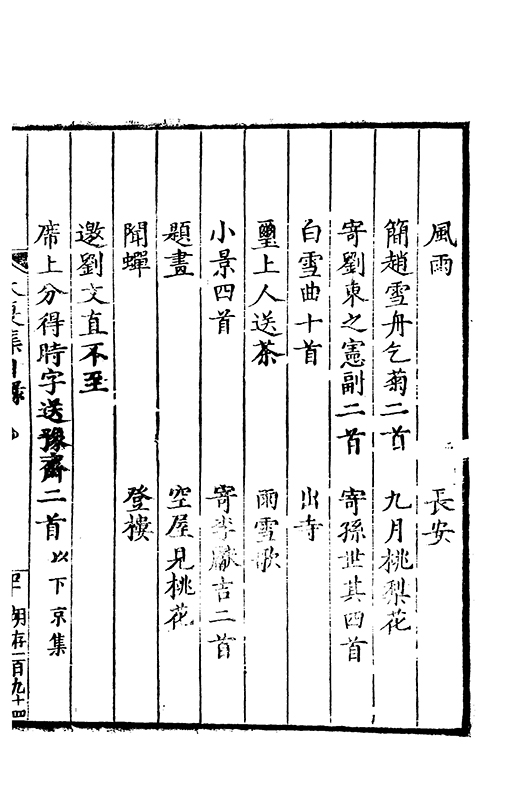 風雨　長安
簡趙雪舟乞菊二首　九月桃梨花
寄劉東之憲副二首　寄孫世其四首
白雪曲十首　出寺
璽上人送茶　雨雪歌
小景四首　寄李獻吉二首
題畫　空屋見桃花
聞蟬　登樓
邀劉文直不至
席上分得時字送豫齋二首以下京集
集目錄
朝存一百九十四